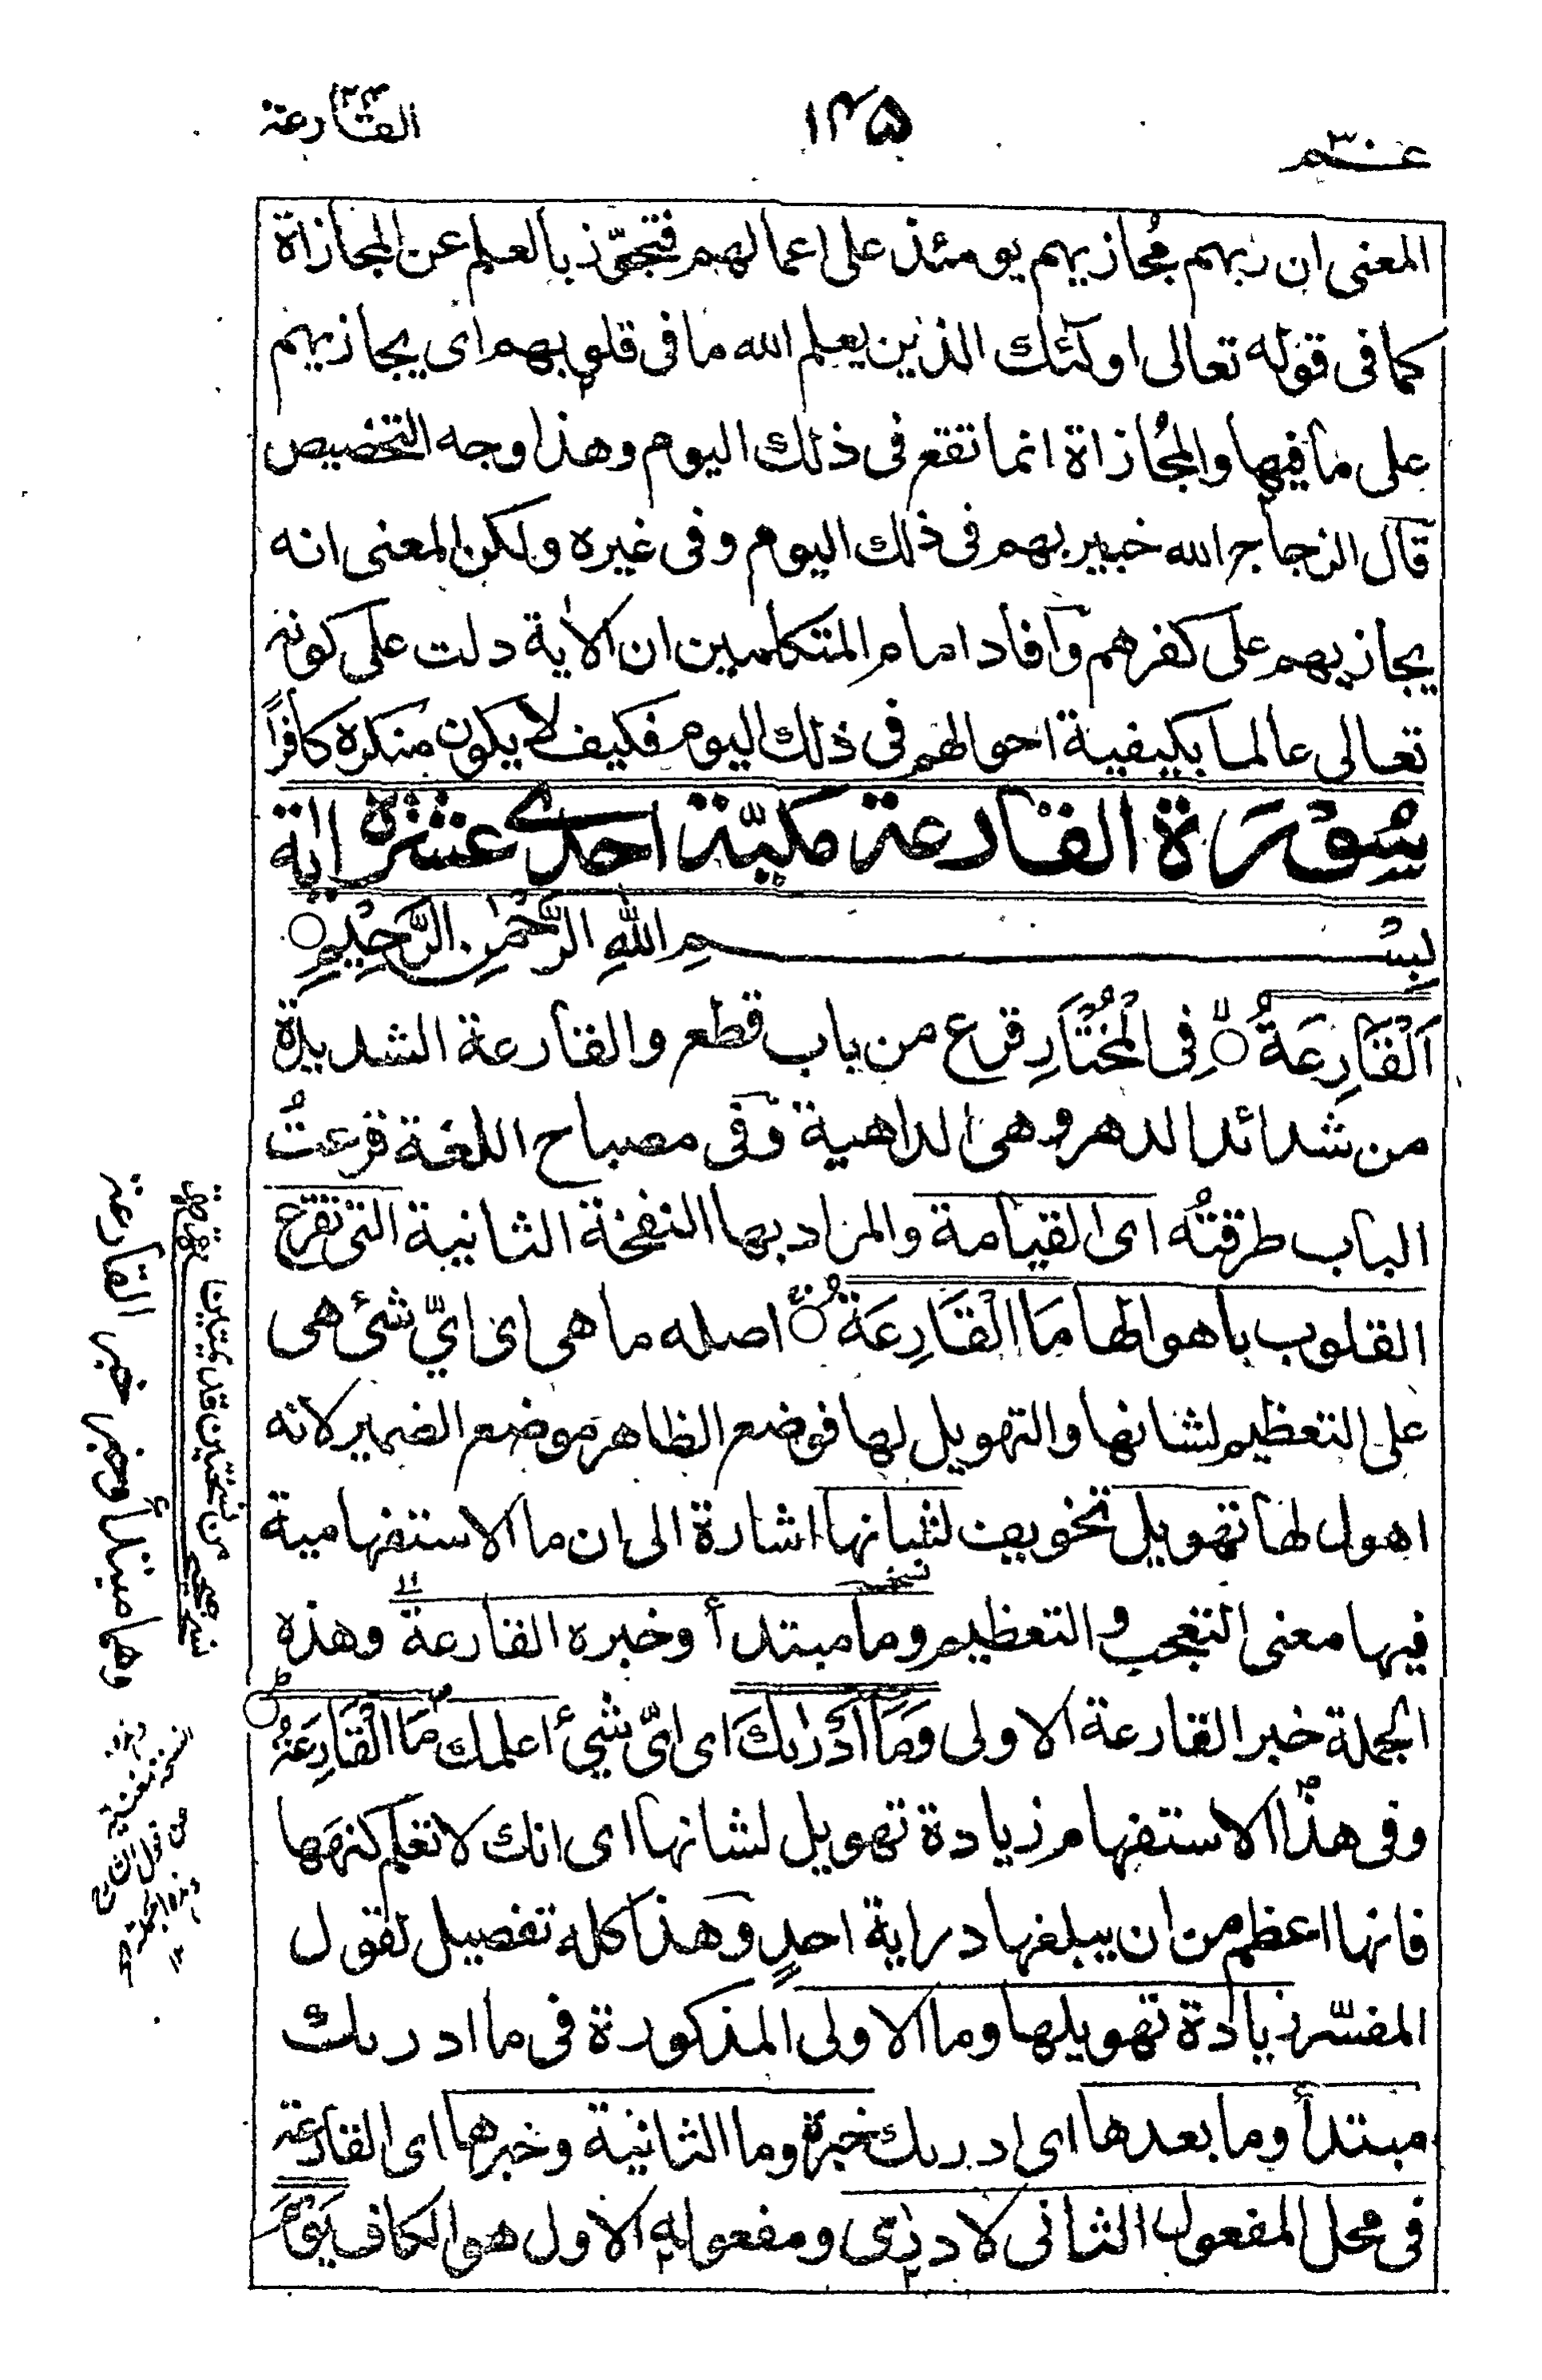 القارعة ١٤٥ عم ٣٠
المعنى ان ربهم مُجازيهم يومئذ على اعمالهم فتجوّز بالعلم عن المجازاة
كما فى قوله تعالى اولٓئك الذين يعلم الله ما فى قلوبهم اى يجازيهم
على ما فيها والمُجازاة انما تقع فى ذلك اليوم وهذا وجه التخصيص
قال الزجاج الله خبير بهم فى ذلك اليوم وفى غيره ولكن المعنى انه
يجازيهم على كفرهم وافاد امام المتكلمين ان الاٰية دلت على كونه
تعالى عالما بكيفية احوالهم فى ذلك اليوم فكيف لا يكون منكره كافراً
سُوْرَة القارعة مكيّة احدى عشرة اية
بِسْمِ اللهِ الرَّحْمٰنِ الرَّحِيْمِ
اَلْقَارِعَةُ فِى الْمُخْتَارِ قرع من باب قطع والقارعة الشديدة
من شدائد الدهر وهى الداهية وفى مصباح اللغة قرعتُ
الباب طرقتُه اى القيامة والمراد بها النفخة الثانية التى تقرع
القلوب باهوالها مَا الْقَارِعَةُ اصله ما هى اى ايّ شئ هى
على التعظيم لشانها والتهويل لها فوضع الظاهر موضع الضمير لانه
اهول لها تهويل تخويف لشانها اشارة الى ان ما الاستفهامية
فيها معنى التعجب والتعظيم وما مبتدأ وخبره القارعة وهذه
الجملة خبر القارعة الاولى وَمَآ اَدْرٰىكَ اى ايّ شئ اعلمك مَا الْقَارِعَةُ
وفى هذا الاستفهام زيادة تهويل لشانها اى انك لا تعلم كنهها
فانها اعظم من ان يبلغها دراية احدٍ وهذا كله تفصيل لقول
المفسّر زيادة تهويلها وما الاولى المذكورة فى ما ادرىك
مبتدأ وما بعدها اى ادرىك خبره وما الثانية وخبرها اى القارعة
فى محل المفعول الثانى لادرٰى ومفعوله الاول هو الكاف يَوْمَ
وهما مبتدأ وخبر خبر القارعة